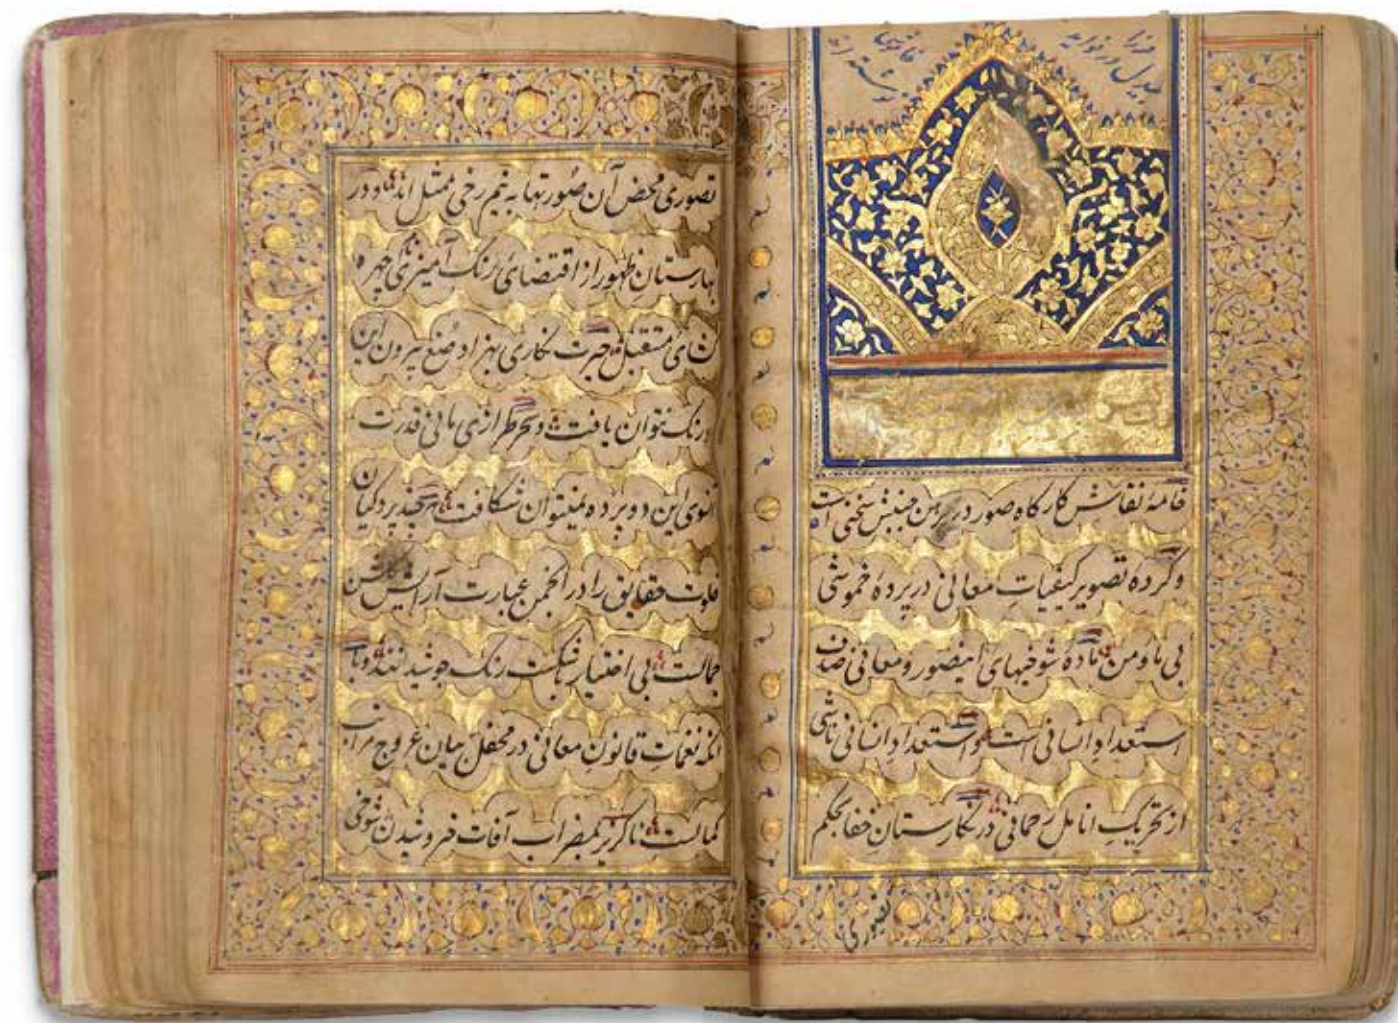 خامه نقاش کارکاه صور در رهن جنبش سخنی است
وکرده تصویر کیفیات معانی در پرده خموشی
بی ما و من ماده شوخیهای این صور و معانی صدف
استعداد انسانی است و استعداد انسانی ناشی
از تحریک انامل رحمانی در نکارستان خفا بحکم
تصوری
تصوری محض آن صورتها به نیم رخی ممثل اند و در
بهارستان ظهور از اقتضای رنک آمیزی چهره
های مستقبل حیرت نکاری بهزاد صنع بیرون این
رنک نتوان یافت و سحر طرازی مانی قدرت
آنسوی این دو پرده نمیتوان شکافت هرچند پردکیان
خلوت حقایق را در انجمن عبارت آرایش حسن
جمالست بی اختیار شکست رنک جوشیدنند و با
آنکه نغمات قانون معانی در محفل بیان عروج مراتب
کمالست ناکزیر بمضراب آفات شوخی